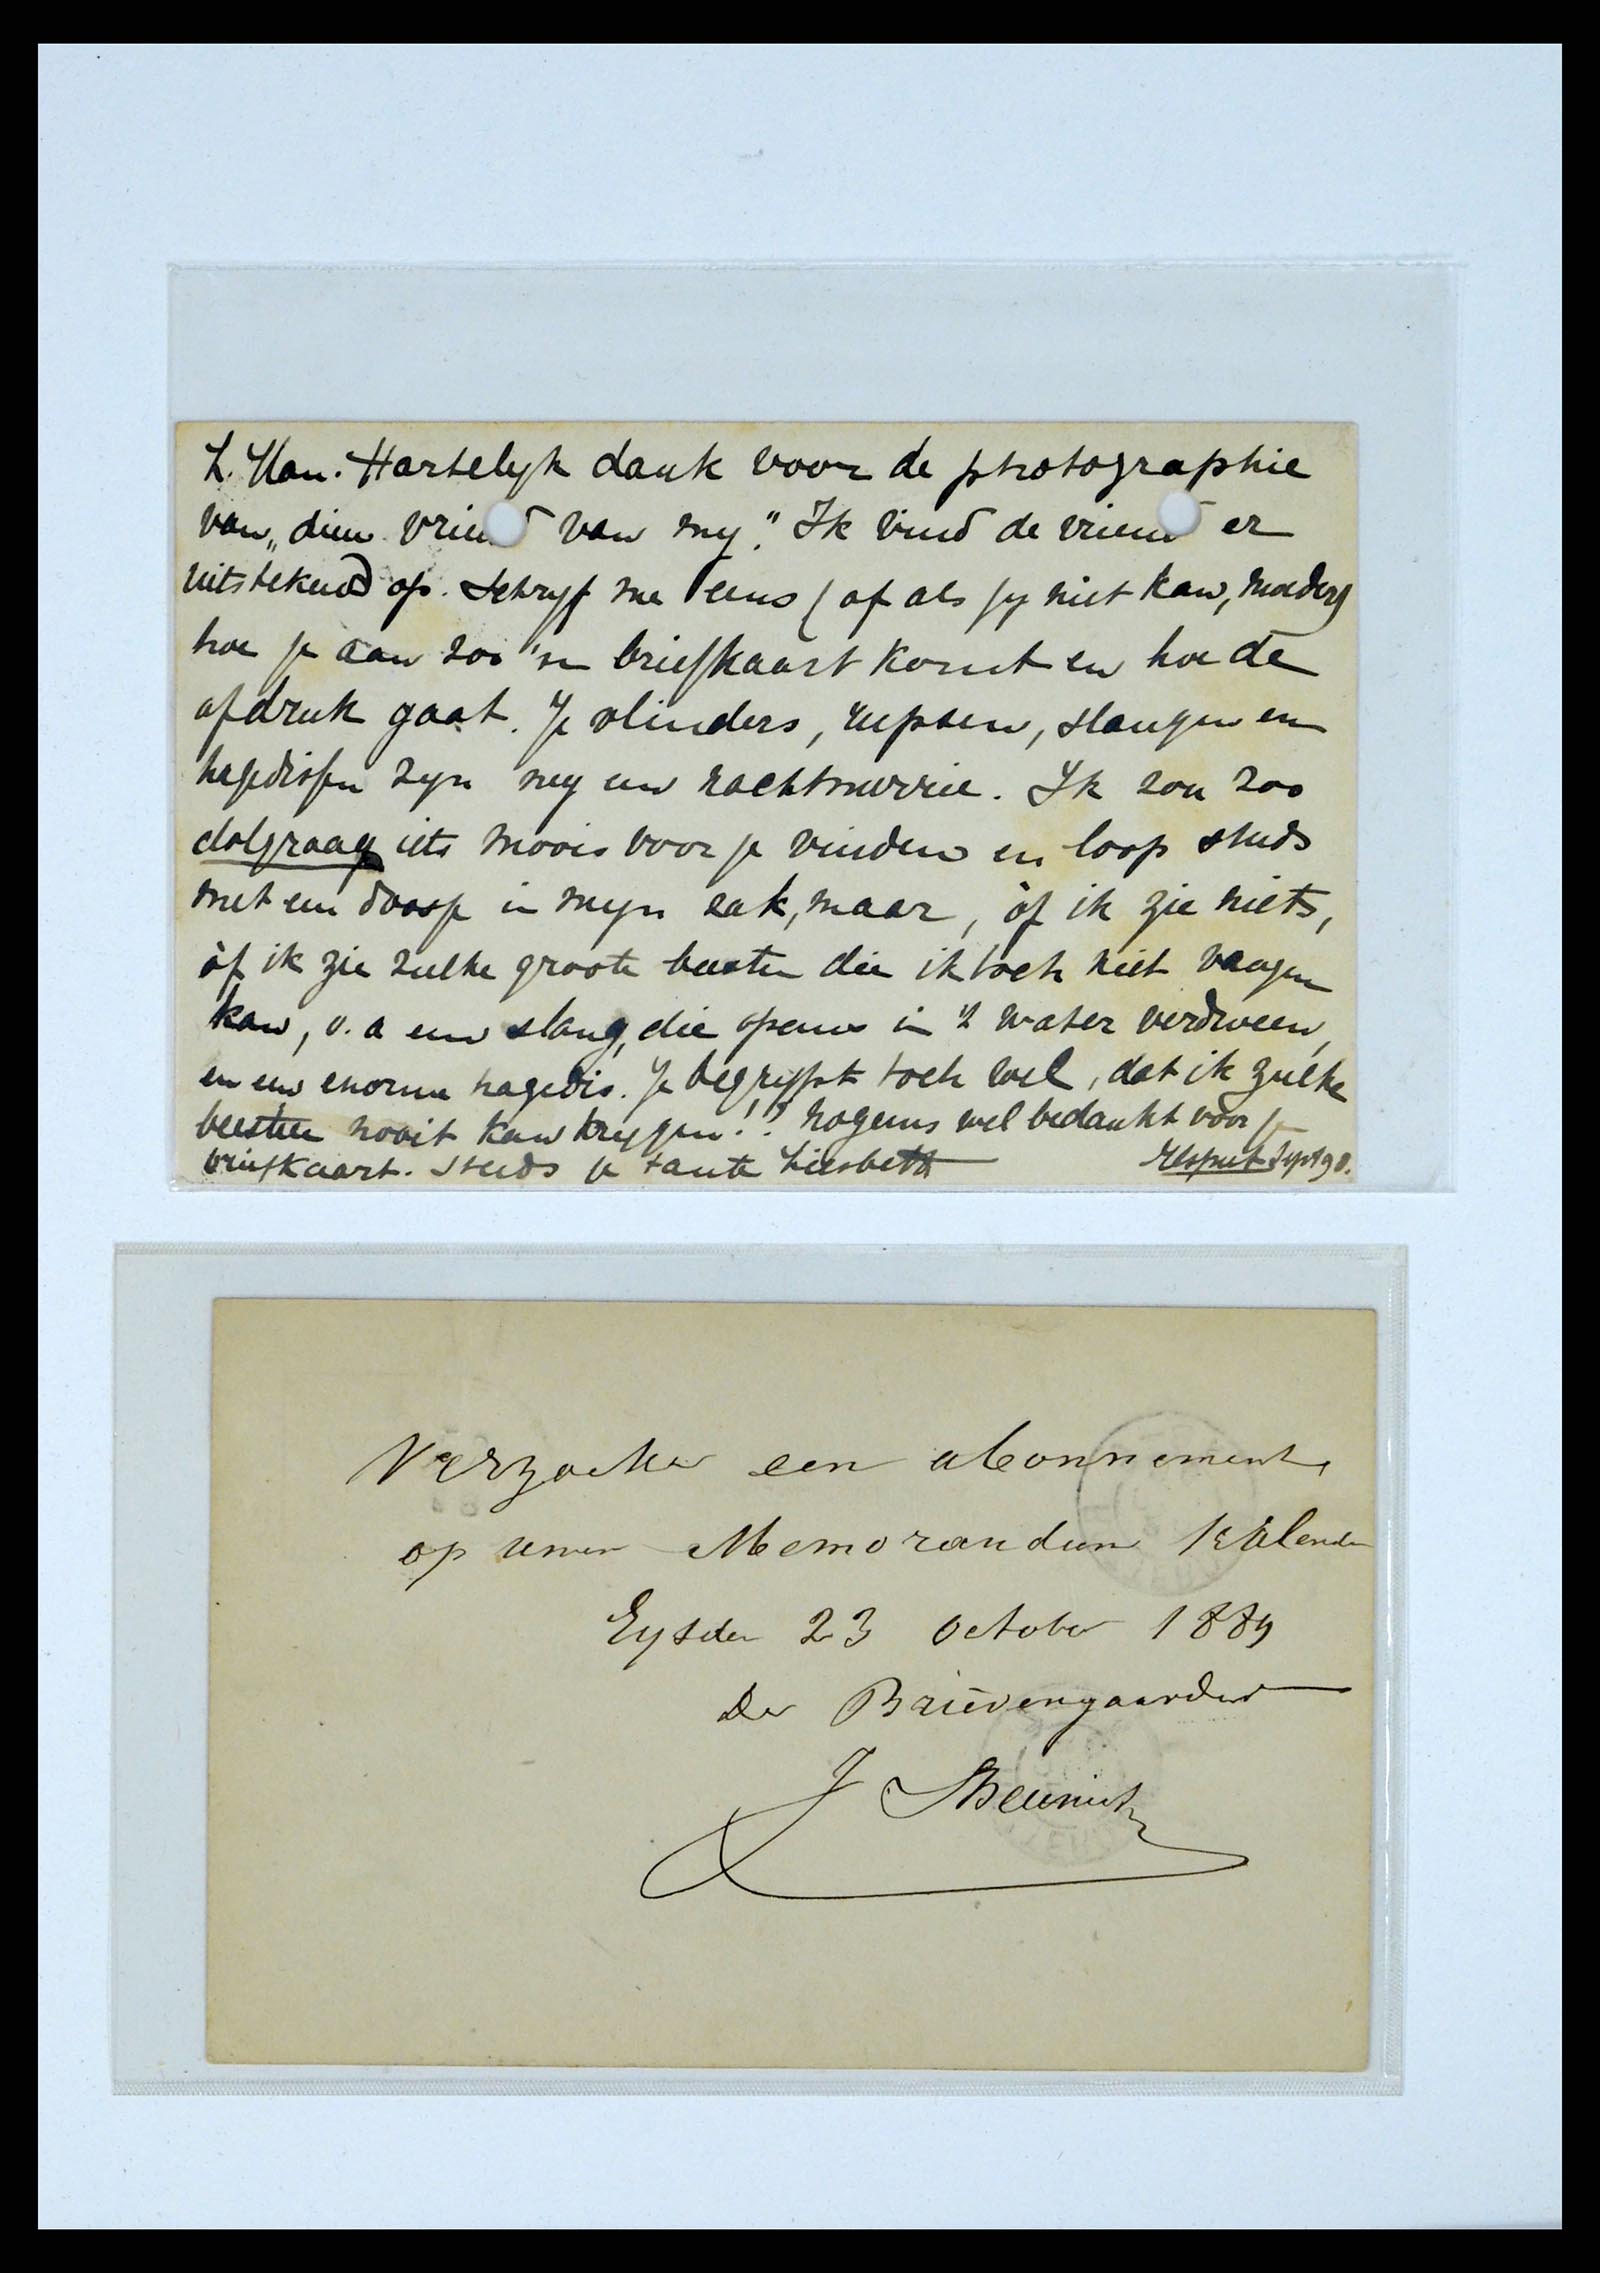 L. Man. Hartelyk dank voor de photographie
van „dien vriend van my." Ik vind de vriend er
uitstekend op. Schryf me eens (of als jy niet kan, moeder)
hoe je aan zoo 'n briefkaart komt en hoe de
afdruk gaat. Je vlinders, rupsen, slangen en
hagedissen zyn my een nachtmerrie. Ik zou zoo
dolgraag iets moois voor je vinden en loop steeds
met een doosje in myn zak, maar, òf ik zie niets,
òf ik zie zulke groote beesten die ik toch niet vangen
kan, o.a een slang, die opeens in 't water verdween,
en een enorme hagedis. Je begrypt toch wel, dat ik zulke
beesten nooit kan krygen!! Nogeens wel bedankt voor je
briefkaart. Steeds je tante Liesbeth Sept 98.
Verzoeke een abonnement
op uwen Memorandum Kalender
Eysden 23 October 1889
De Brievengaarder
J